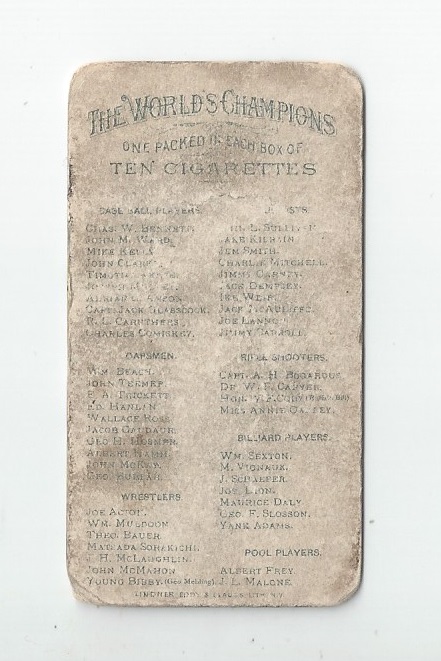 THE WORLD'S CHAMPIONS
ONE PACKED IN EACH BOX OF
TEN CIGARETTES
BASE BALL PLAYERS.
CHAS. W. BENNETT.
JOHN M. WARD.
MIKE KELLY.
JOHN CLARK
CAPT. JACK GLASSCOCK.
R. L. CARUTHERS.
CHARLES COMISKEY.
OARSMEN.
WM. BEACH.
JOHN TEEMER.
E. A. TRICKETT
ED. HANLAN
WALLACE ROSS
JACOB GAUDAUR.
GEO H. HOSMER.
ALBERT HAMM.
JOHN MCKAY.
GEO. BUBEAR.
WRESTLERS.
JOE ACTON.
WM. MULDOON
THEO. BAUER
MATSADA SORAKICHI.
J. H. MCLAUGHLIN.
JOHN MCMAHON
YOUNG BIBBY. (Geo Mehling).
JOHN L. SULLIVAN
JAKE KILRAIN
JEM SMITH.
CHARLIE MITCHELL.
JIMMY CARNEY.
JACK DEMPSEY.
IKE WEIR.
JACK MCAULIFFE.
JOE LANNON.
RIFLE SHOOTERS.
CAPT. A. H. BOGARDUS.
DR. W. F. CARVER.
HON. W. F. CODY (Buffalo Bill)
MISS ANNIE OAKLEY.
BILLIARD PLAYERS.
WM. SEXTON.
M. VIGNAUX.
J. SCHAEFER.
JOS. DION.
MAURICE DALY.
GEO. F. SLOSSON.
YANK ADAMS.
POOL PLAYERS.
ALBERT FREY.
J. L. MALONE.
LINDNER, EDDY & CLAUSS, LITH. N.Y.